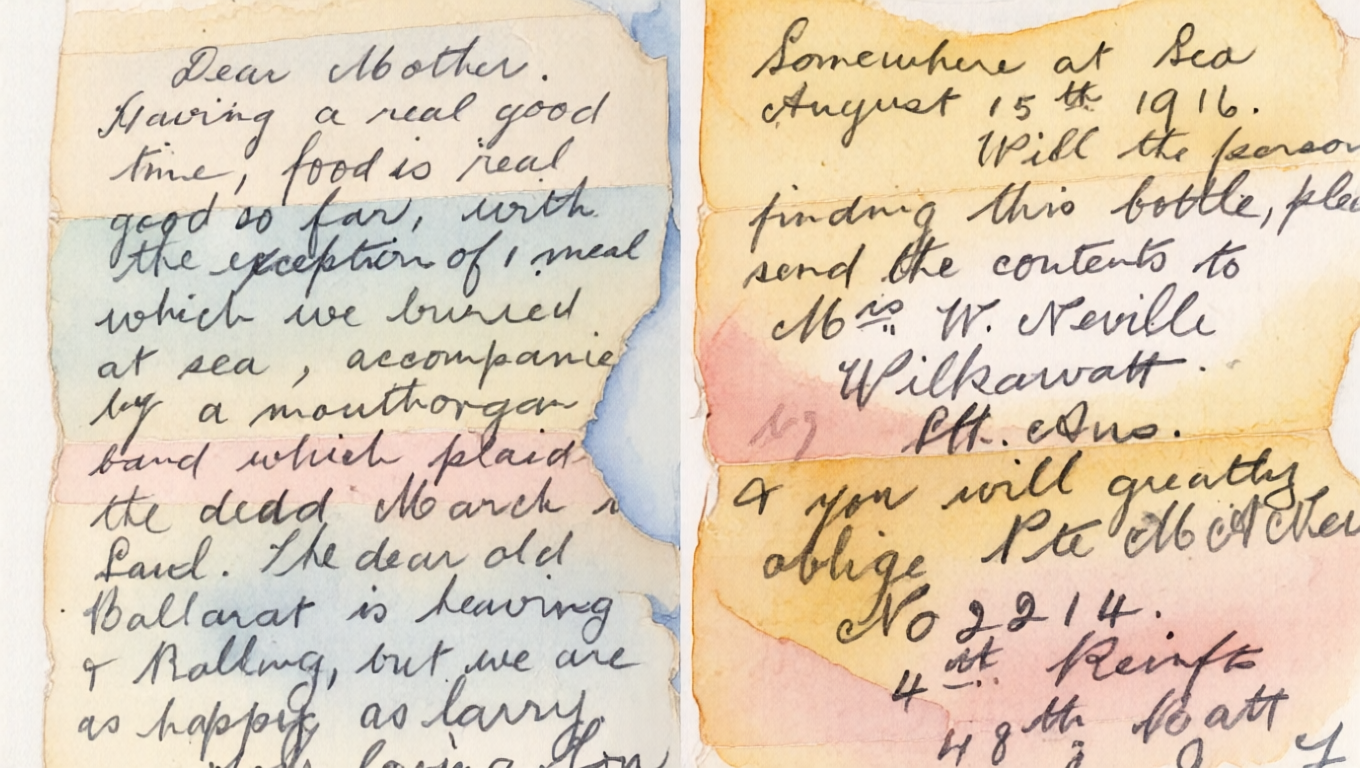 Dear Mother.
Having a real good
time, food is real
good so far, with
the exception of 1 meal
which we buried
at sea, accompanie
by a mouthorgan
band which plaid
the dedd March
Saul. The dear old
Ballarat is heaving
& Rolling, but we are
as happy as larry.
loving Son
Somewhere at Sea
August 15th 1916.
Will the person
finding this bottle, plea
send the contents to
Mrs W. Neville
Wilkawatt.
Sth. Aus.
& you will greatly
oblige Pte M A Nev
No 2214.
4st Reinfts
48th Batt